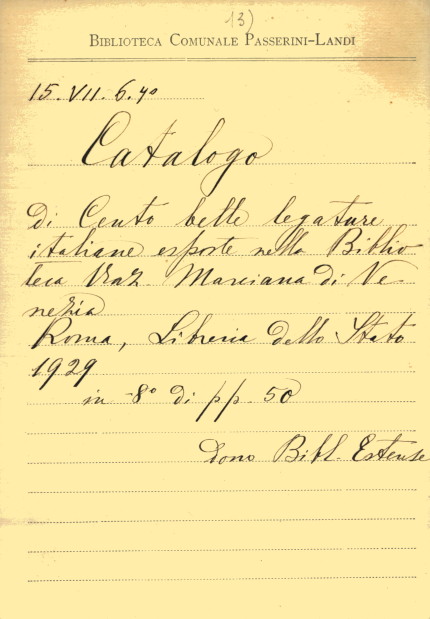 13)
BIBLIOTECA COMUNALE PASSERINI-LANDI
15. VII. 6. 40
Catalogo
di Cento belle legature
italiane esposte nella Biblio-
teca Naz. Marciana di Ve-
nezia
Roma, Libreria dello Stato
1929
in -8° di pp. 50
Dono Bibl. Estense